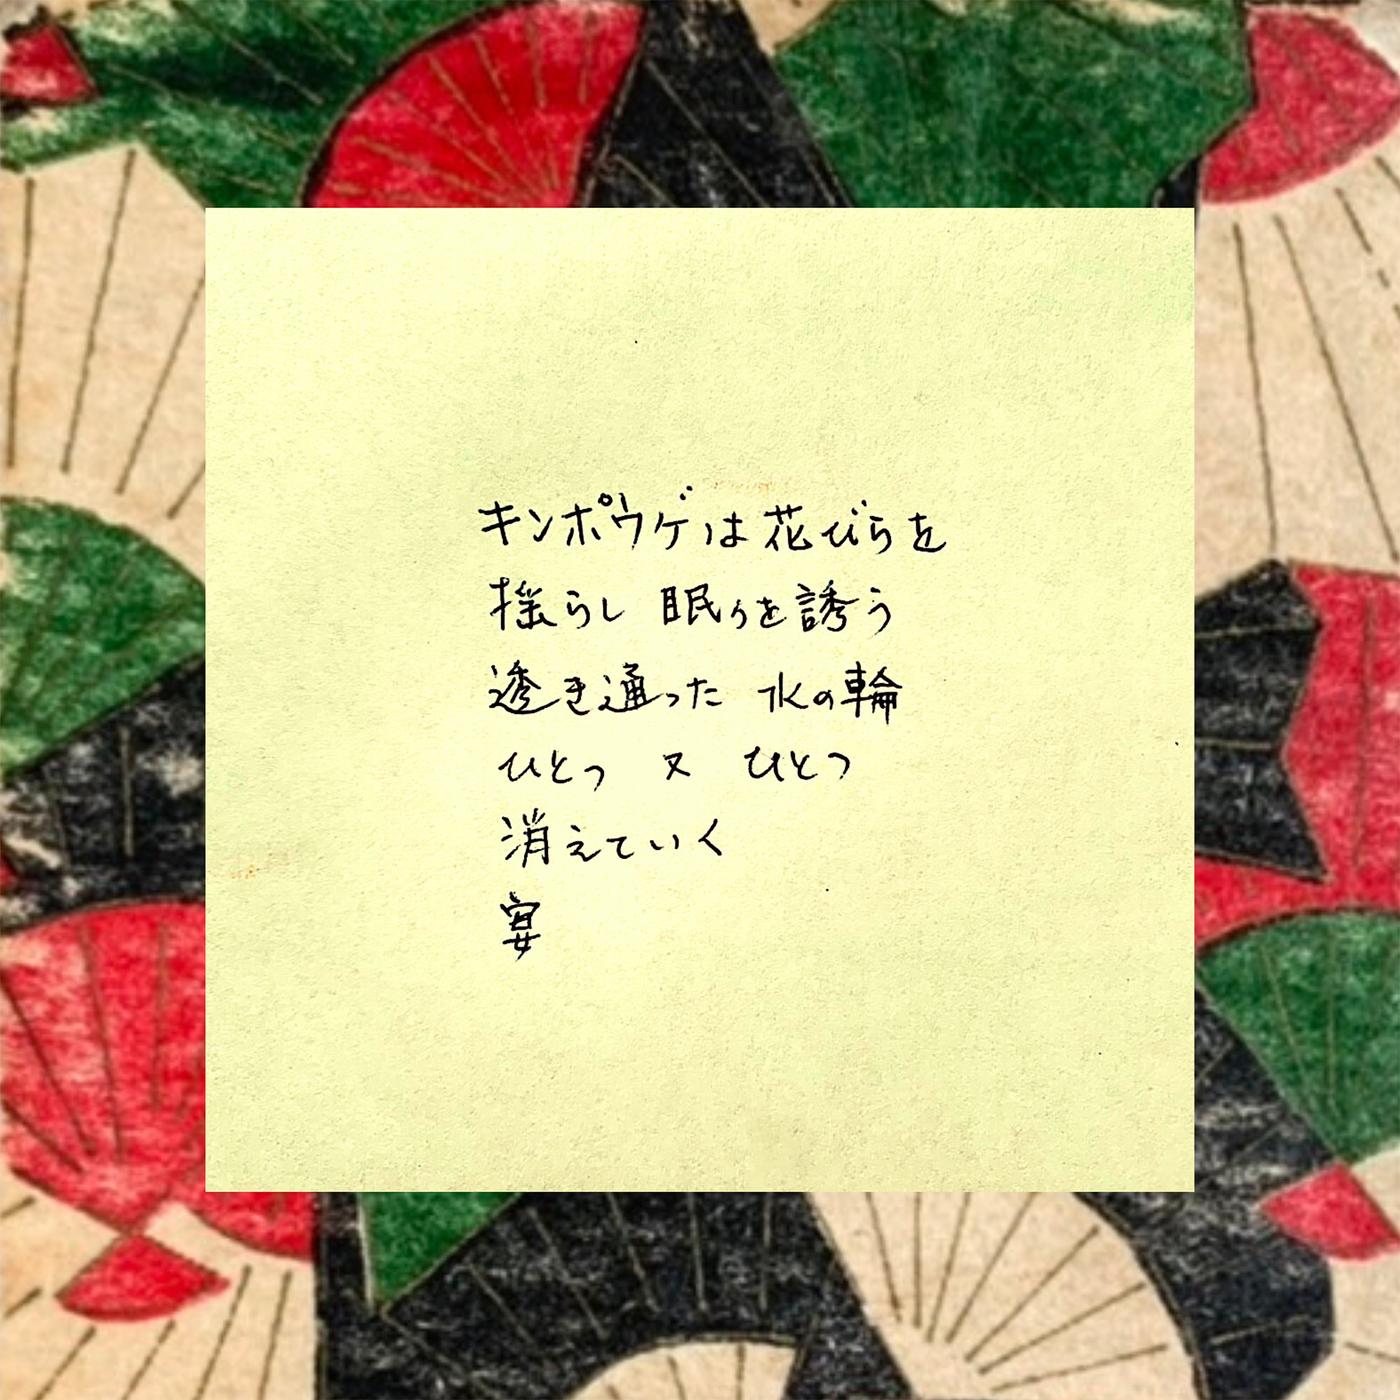 キンポウゲは花びらを
揺らし 眠りを誘う
透き通った 水の輪
ひとつ 又 ひとつ
消えていく
宴